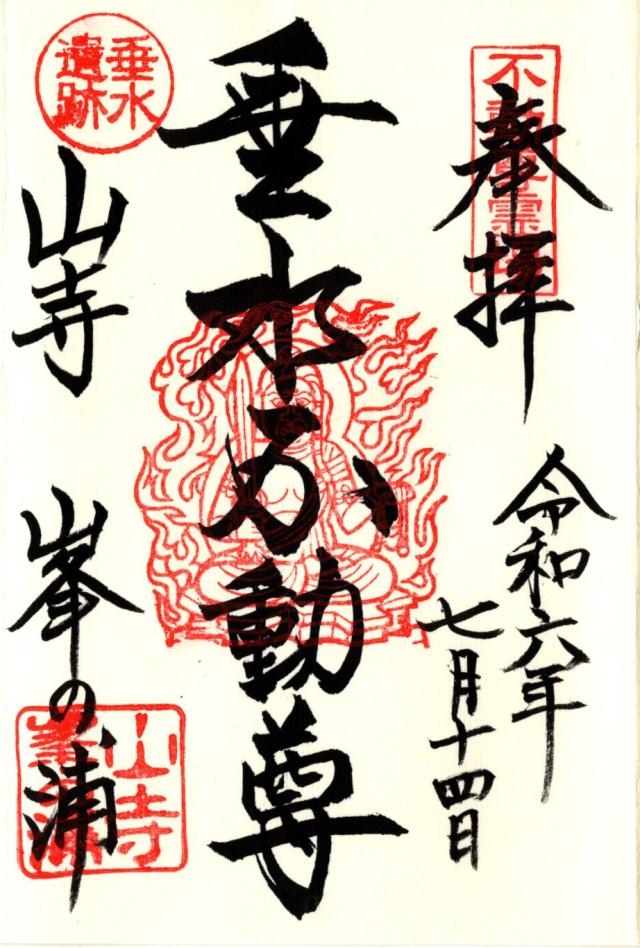 奉拝
令和六年
七月十四日
垂水不動尊
垂水
遺跡
山寺
峯の浦
不動尊霊場
山寺
峯の浦